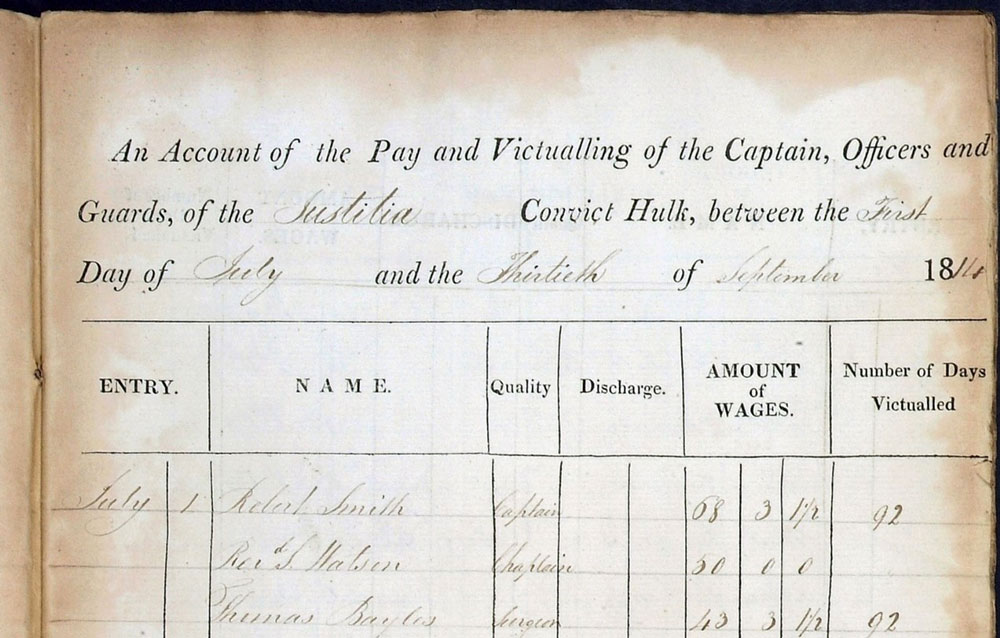 An Account of the Pay and Victualling of the Captain, Officers and
Guards, of the Justitia Convict Hulk, between the First
Day of July and the Thirtieth of September 1814
ENTRY. NAME. Quality Discharge. AMOUNT of WAGES. Number of Days Victualled
July 1 Robert Smith Captain 68 3 1½ 92
Revd S. Watson Chaplain 50 0 0
Thomas Bayles Surgeon 43 3 1½ 92